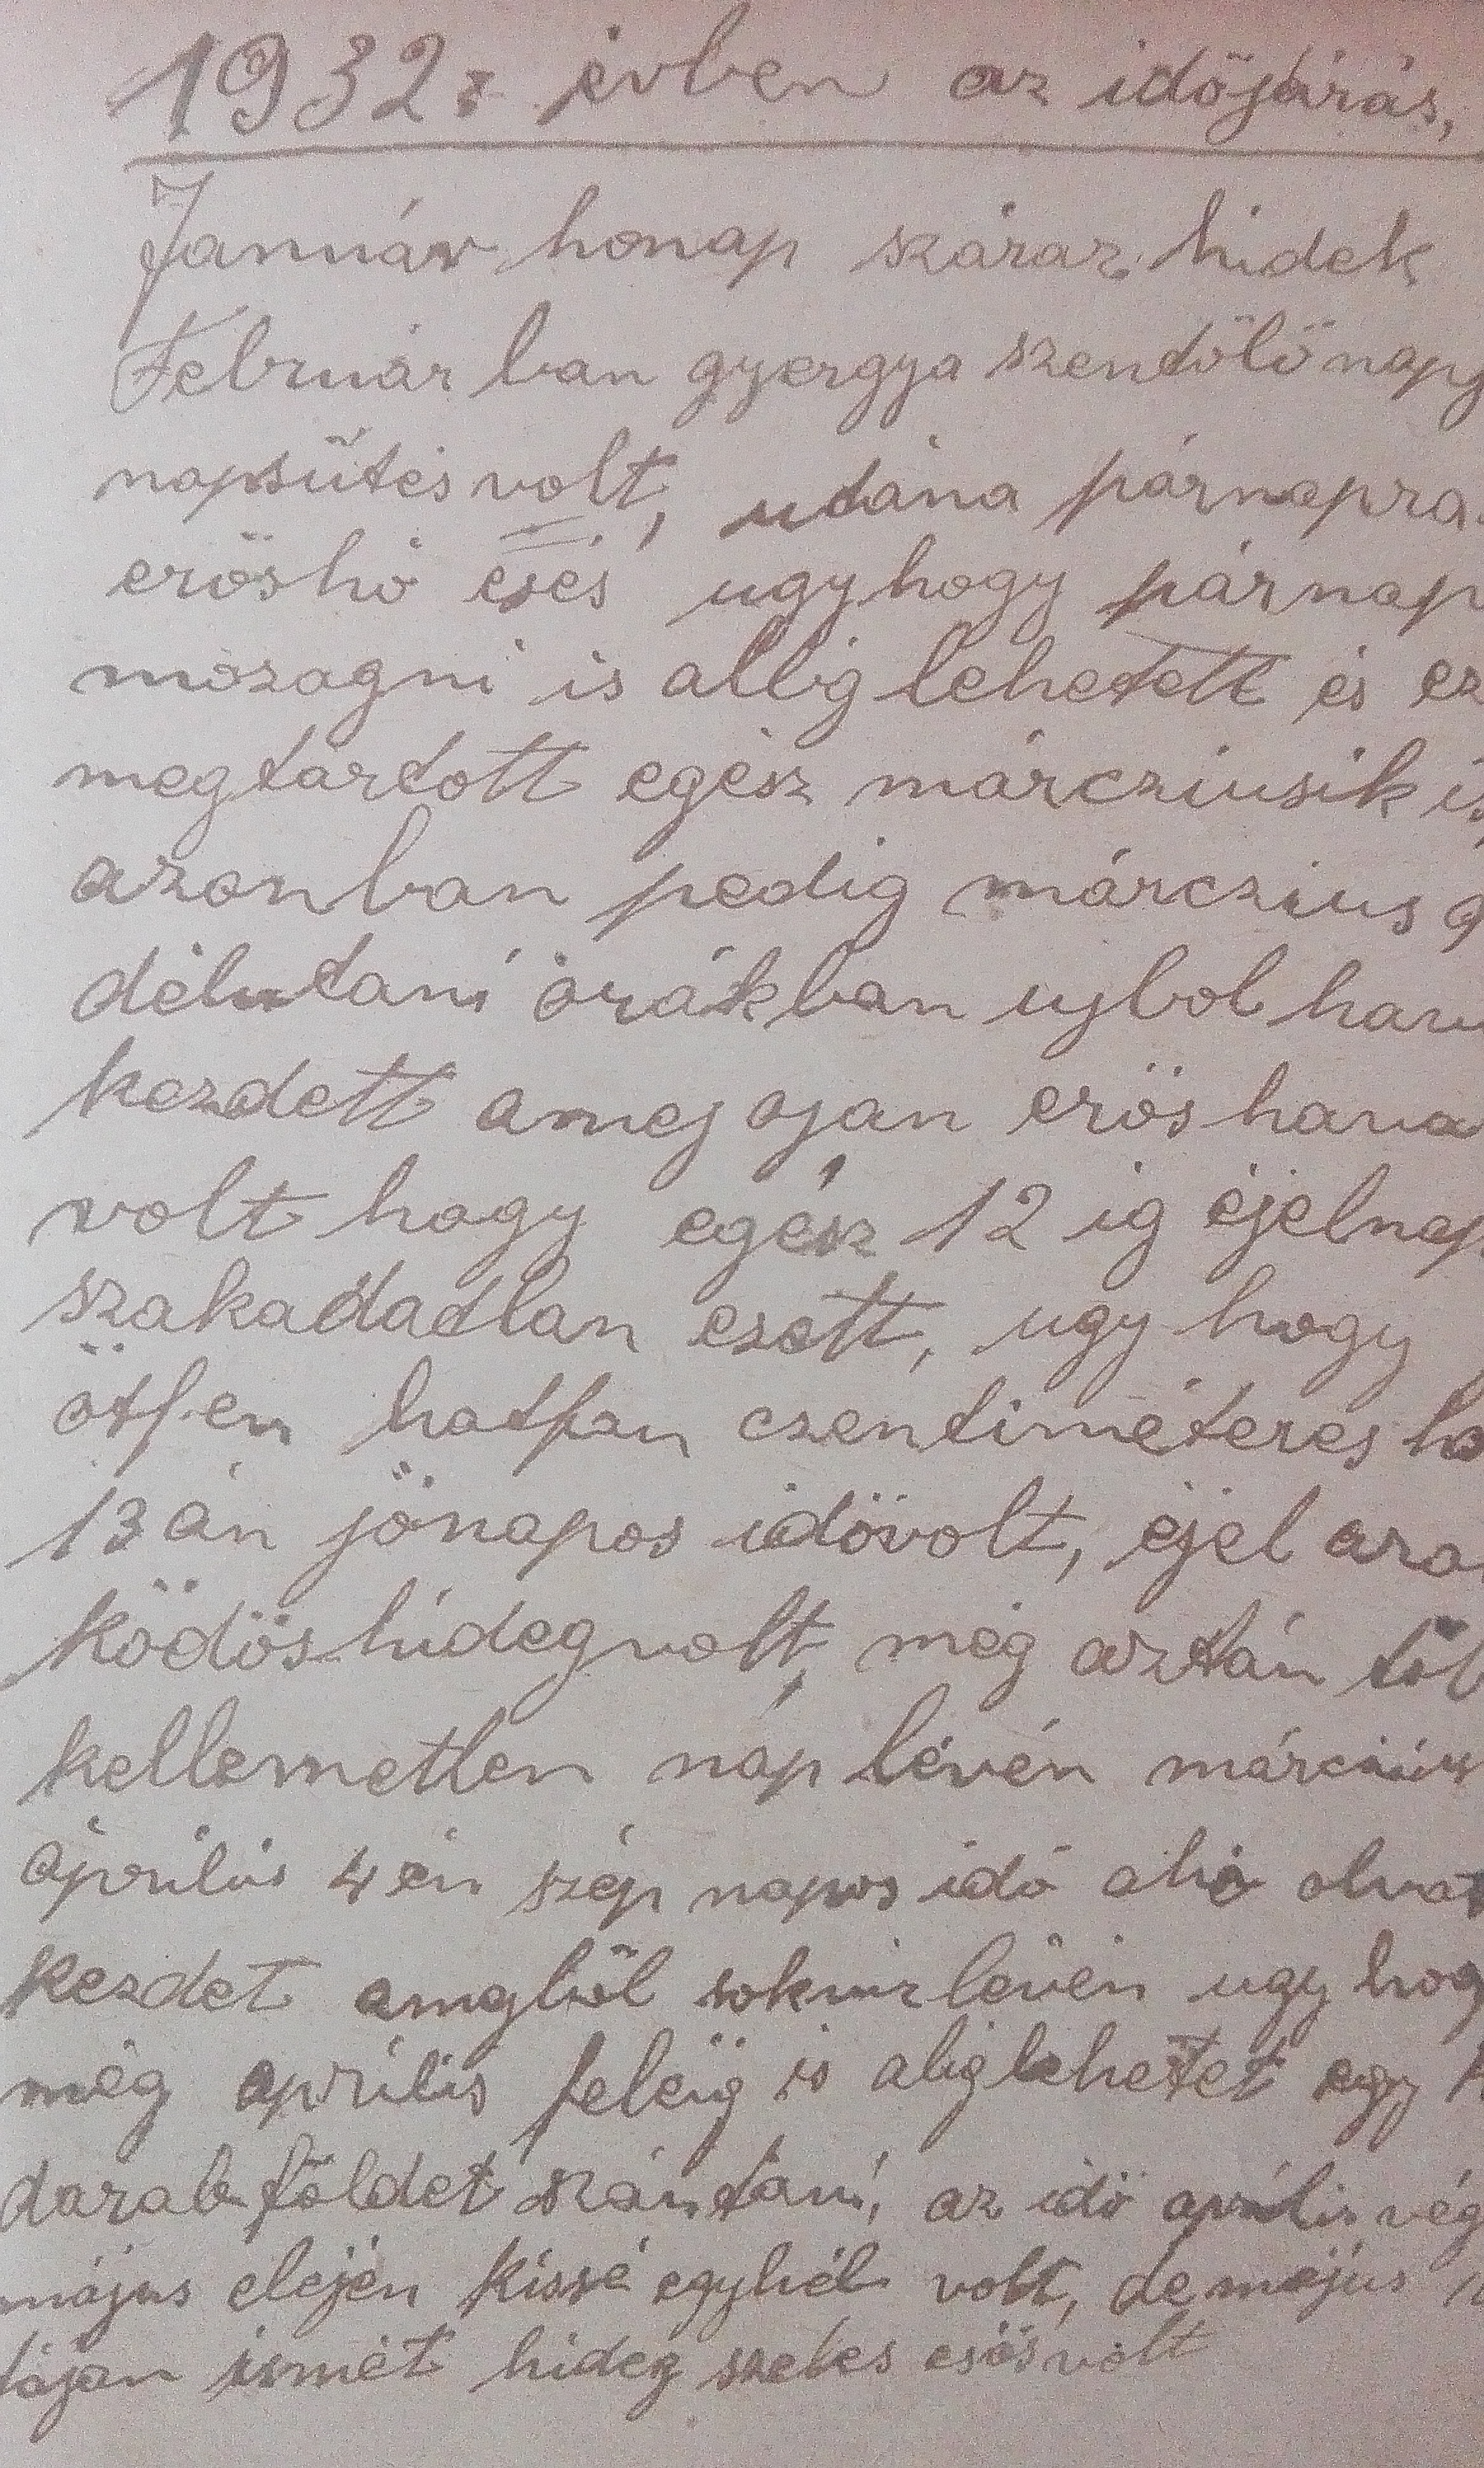 1932. évben az időjárás,
Január honap száraz hidek
Február ban gyergya szendölö napg
napsütés volt, utána párnapra
erös hó esés ugyhogy párnap
mozogni is allig lehetett és ez
megtartott egész márcziusik is,
azonban pedig márczius 9
délutani órákban ujbol hava
kezdett amej ojan erös hava
volt hogy egész 12 ig éjelnap
szakadadlan esett, ugy hogy
ötfen hatfan czentiméteres ho
13 án jónapos idövolt, éjel
ködös hideg volt, még aztán töb
kellemetlen nap lévén márczius
április 4 én szép napos idö
kezdet ugy hog
még április feléig is alig lehetet egy
darab földet szántani, az idö április vég
május elején kissé egyhéb volt, de május
táján ismét hideg szeles esös volt